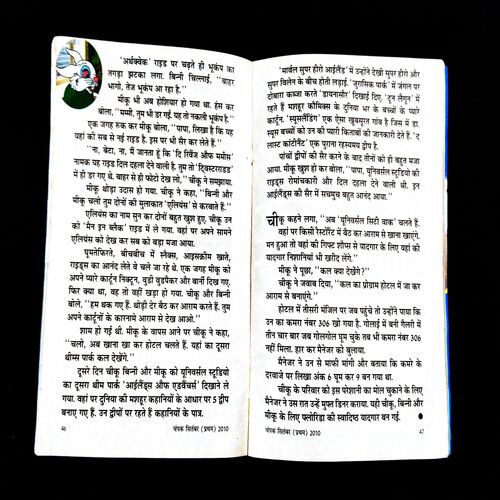 'अर्थक्वेक' राइड पर चढ़ते ही भूकंप का
तगड़ा झटका लगा. बिन्नी चिल्लाई, ''बाहर
भागो, तेज भूकंप आ रहा है.''
मीकू भी अब होशियार हो गया था. हंस कर
बोला, ''मम्मी, तुम भी डर गई. यह तो नकली भूकंप है.''
एक जगह रुक कर मीकू बोला, ''पापा, लिखा है कि यह
यहां की सब से नई राइड है. इस पर भी सैर कर लेते हैं.
''ना, बेटा, ना, मैं जानता हूं कि 'द रिवेंज औफ ममीस'
नामक यह राइड दिल दहला देने वाली है. तुम तो 'ट्विस्टरराइड'
में ही डर गए थे. बाहर से ही फोटो देख लो,'' चीकू ने समझाया.
मीकू थोड़ा उदास हो गया. चीकू ने कहा, ''बिन्नी और
मीकू चलो तुम दोनों की मुलाकात 'एलियंस' से करवाते हैं.''
एलियंस का नाम सुन कर दोनों बहुत खुश हुए. चीकू उन
को 'मैन इन ब्लैक' राइड में ले गया. वहां पर अपने सामने
एलियंस को देख कर सब को बड़ा मजा आया.
घूमतेफिरते, बीचबीच में स्नैक्स, आइसक्रीम खाते,
राइड्स का आनंद लेते वे चले जा रहे थे. एक जगह मीकू को
अपने प्यारे कार्टून निक्टून, वुडी वुडपैकर और बार्नी दिख गए.
फिर क्या था, वह तो वहीं खड़ा हो गया. चीकू और बिन्नी
बोले, ''हम थक गए हैं. थोड़ी देर बैठ कर आराम करते हैं. तुम
अपने कार्टूनों के कारनामे आराम से देख आओ.''
शाम हो गई थी. मीकू के वापस आने पर चीकू ने कहा,
''चलो, अब खाना खा कर होटल चलते हैं. यहां का दूसरा
थीम्स पार्क कल देखेंगे.''
दूसरे दिन चीकू बिन्नी और मीकू को यूनिवर्सल स्टूडियो
का दूसरा थीम पार्क 'आईलैंड्स औफ एडवेंचर्स' दिखाने ले
गया. वहां पर दुनिया की मशहूर कहानियों के आधार पर 5 द्वीप
बनाए गए हैं. उन द्वीपों पर रहते हैं कहानियों के पात्र.
46
चंपक सितंबर (प्रथम) 2010
'मार्वल सुपर हीरो आईलैंड' में उन्होंने देखी सुपर हीरो और
सुपर विलेन के बीच होती लड़ाई. 'जुरासिक पार्क' में जंगल पर
दोबारा कब्जा करते 'डायनासौर' दिखाई दिए. 'टून लैगून' में
रहते हैं मशहूर कौमिक्स के दुनिया भर के बच्चों के प्यारे
कार्टून. 'स्यूसलैंडिंग' एक ऐसा खूबसूरत गांव है जिस में डा.
स्यूस बच्चों को उन की प्यारी किताबों की जानकारी देते हैं. 'द
लास्ट कांटीनेंट' एक पुराना रहस्यमय द्वीप है.
पांचों द्वीपों की सैर करने के बाद तीनों को ही बहुत मजा
आया. मीकू खुश हो कर बोला, ''पापा, यूनिवर्सल स्टूडियो की
राइड्स रोमांचकारी और दिल दहला देने वाली थी. इन
आईलैंड्स की सैर में सचमुच बहुत आनंद आया.''
चीकू कहने लगा, ''अब 'यूनिवर्सल सिटी वाक' चलते हैं.
वहां पर किसी रेस्टोरेंट में बैठ कर आराम से खाना खाएंगे.
मन हुआ तो वहां की गिफ्ट शौप्स से यादगार के लिए यहां की
यादगार निशानियां भी खरीद लेंगे.''
मीकू ने पूछा, ''कल क्या देखेंगे?''
चीकू ने जवाब दिया, ''कल का प्रोग्राम होटल में जा कर
आराम से बनाएंगे.''
होटल में तीसरी मंजिल पर जब पहुंचे तो उन्होंने पाया कि
उन का कमरा नंबर 306 खो गया है. गोलाई में बनी गैलरी में
तीन चार बार जब गोलगोल घूम चुके तब भी कमरा नंबर 306
नहीं मिला. हार कर मैनेजर को बुलाया.
मैनेजर ने उन से माफी मांगी और बताया कि कमरे के
दरवाजे पर लिखा अंक 6 घूम कर 9 बन गया था.
चीकू के परिवार को इस परेशानी का मोल चुकाने के लिए
मैनेजर ने उस रात उन्हें मुफ्त डिनर कराया. यही चीकू, बिन्नी और
मीकू के लिए फ्लोरिडा की स्वादिष्ठ यादगार बन गई. ●
चंपक सितंबर (प्रथम) 2010
47